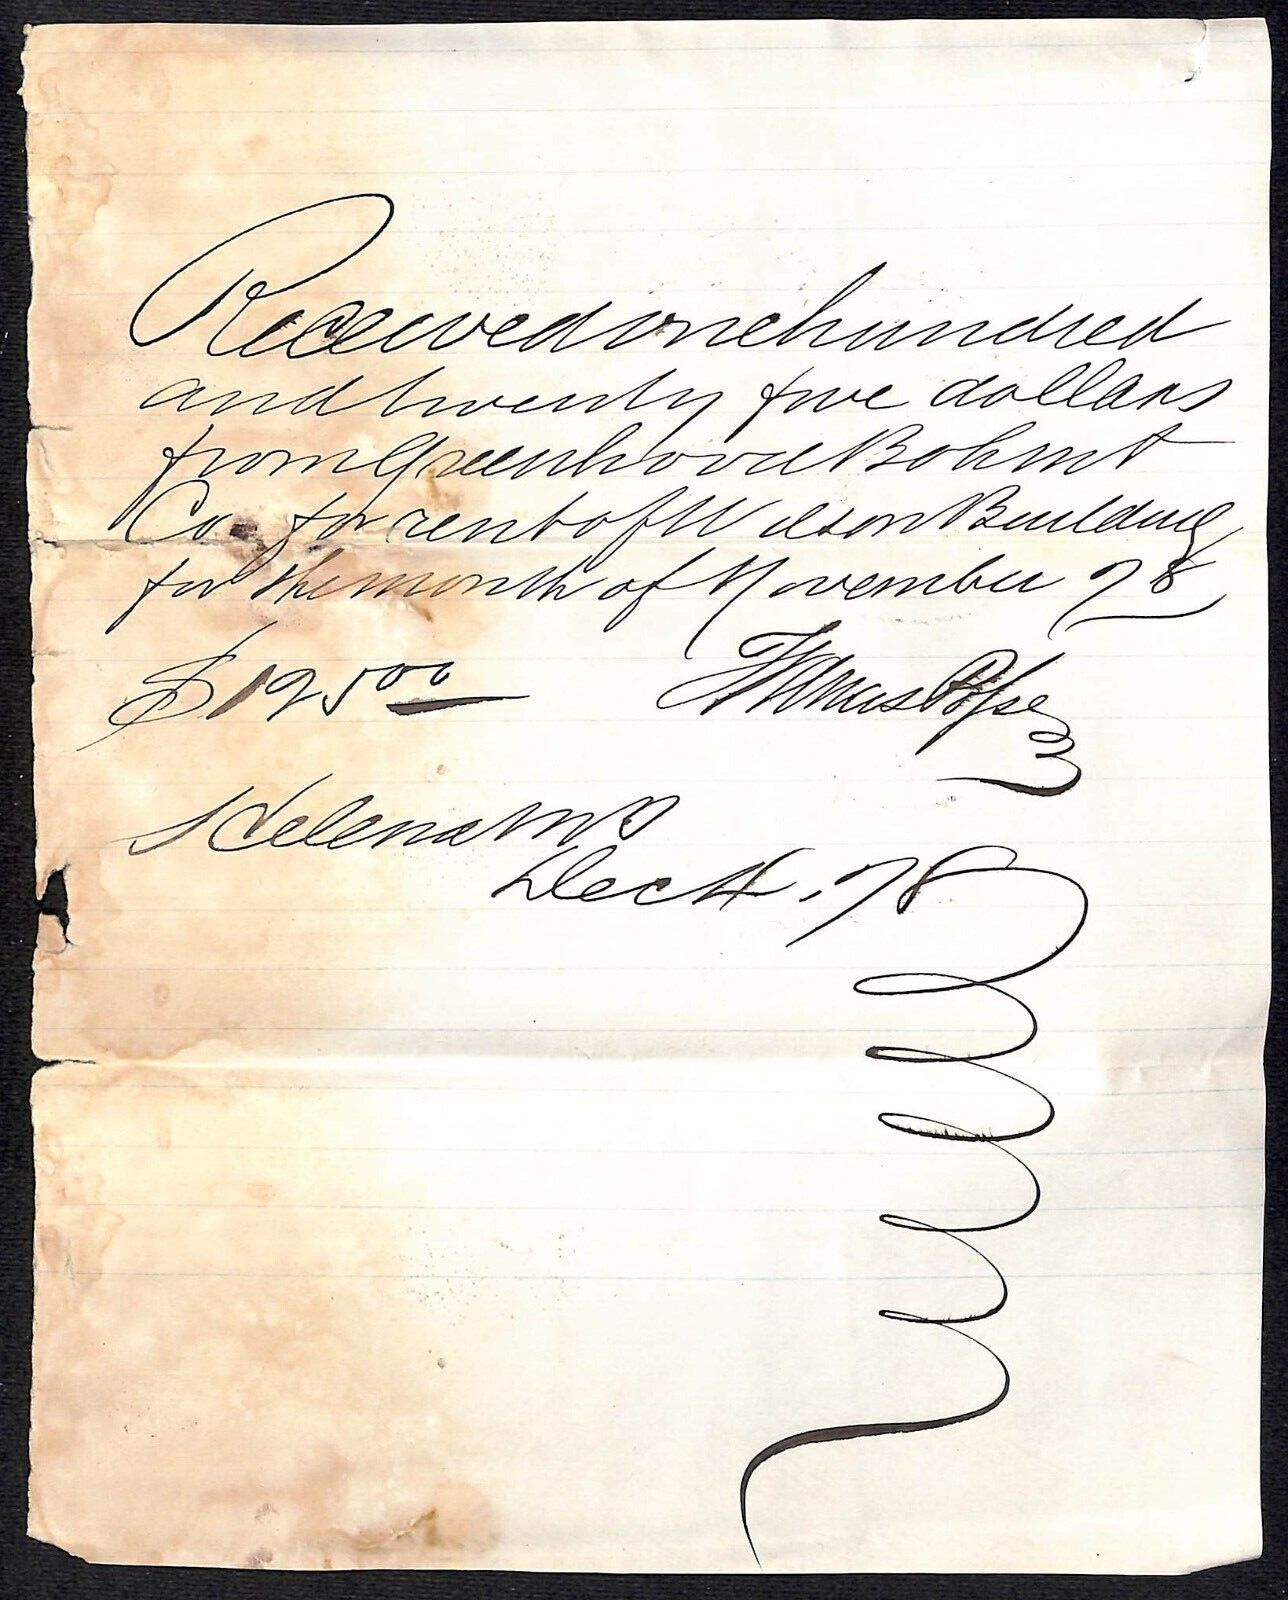 Received one hundred
and twenty five dollars
from Greenhood Bohm &
Co. for rent of Wilson Building
for the month of November 78
$125 00 Thomas Pope
Helena M T
Dec 4. 78